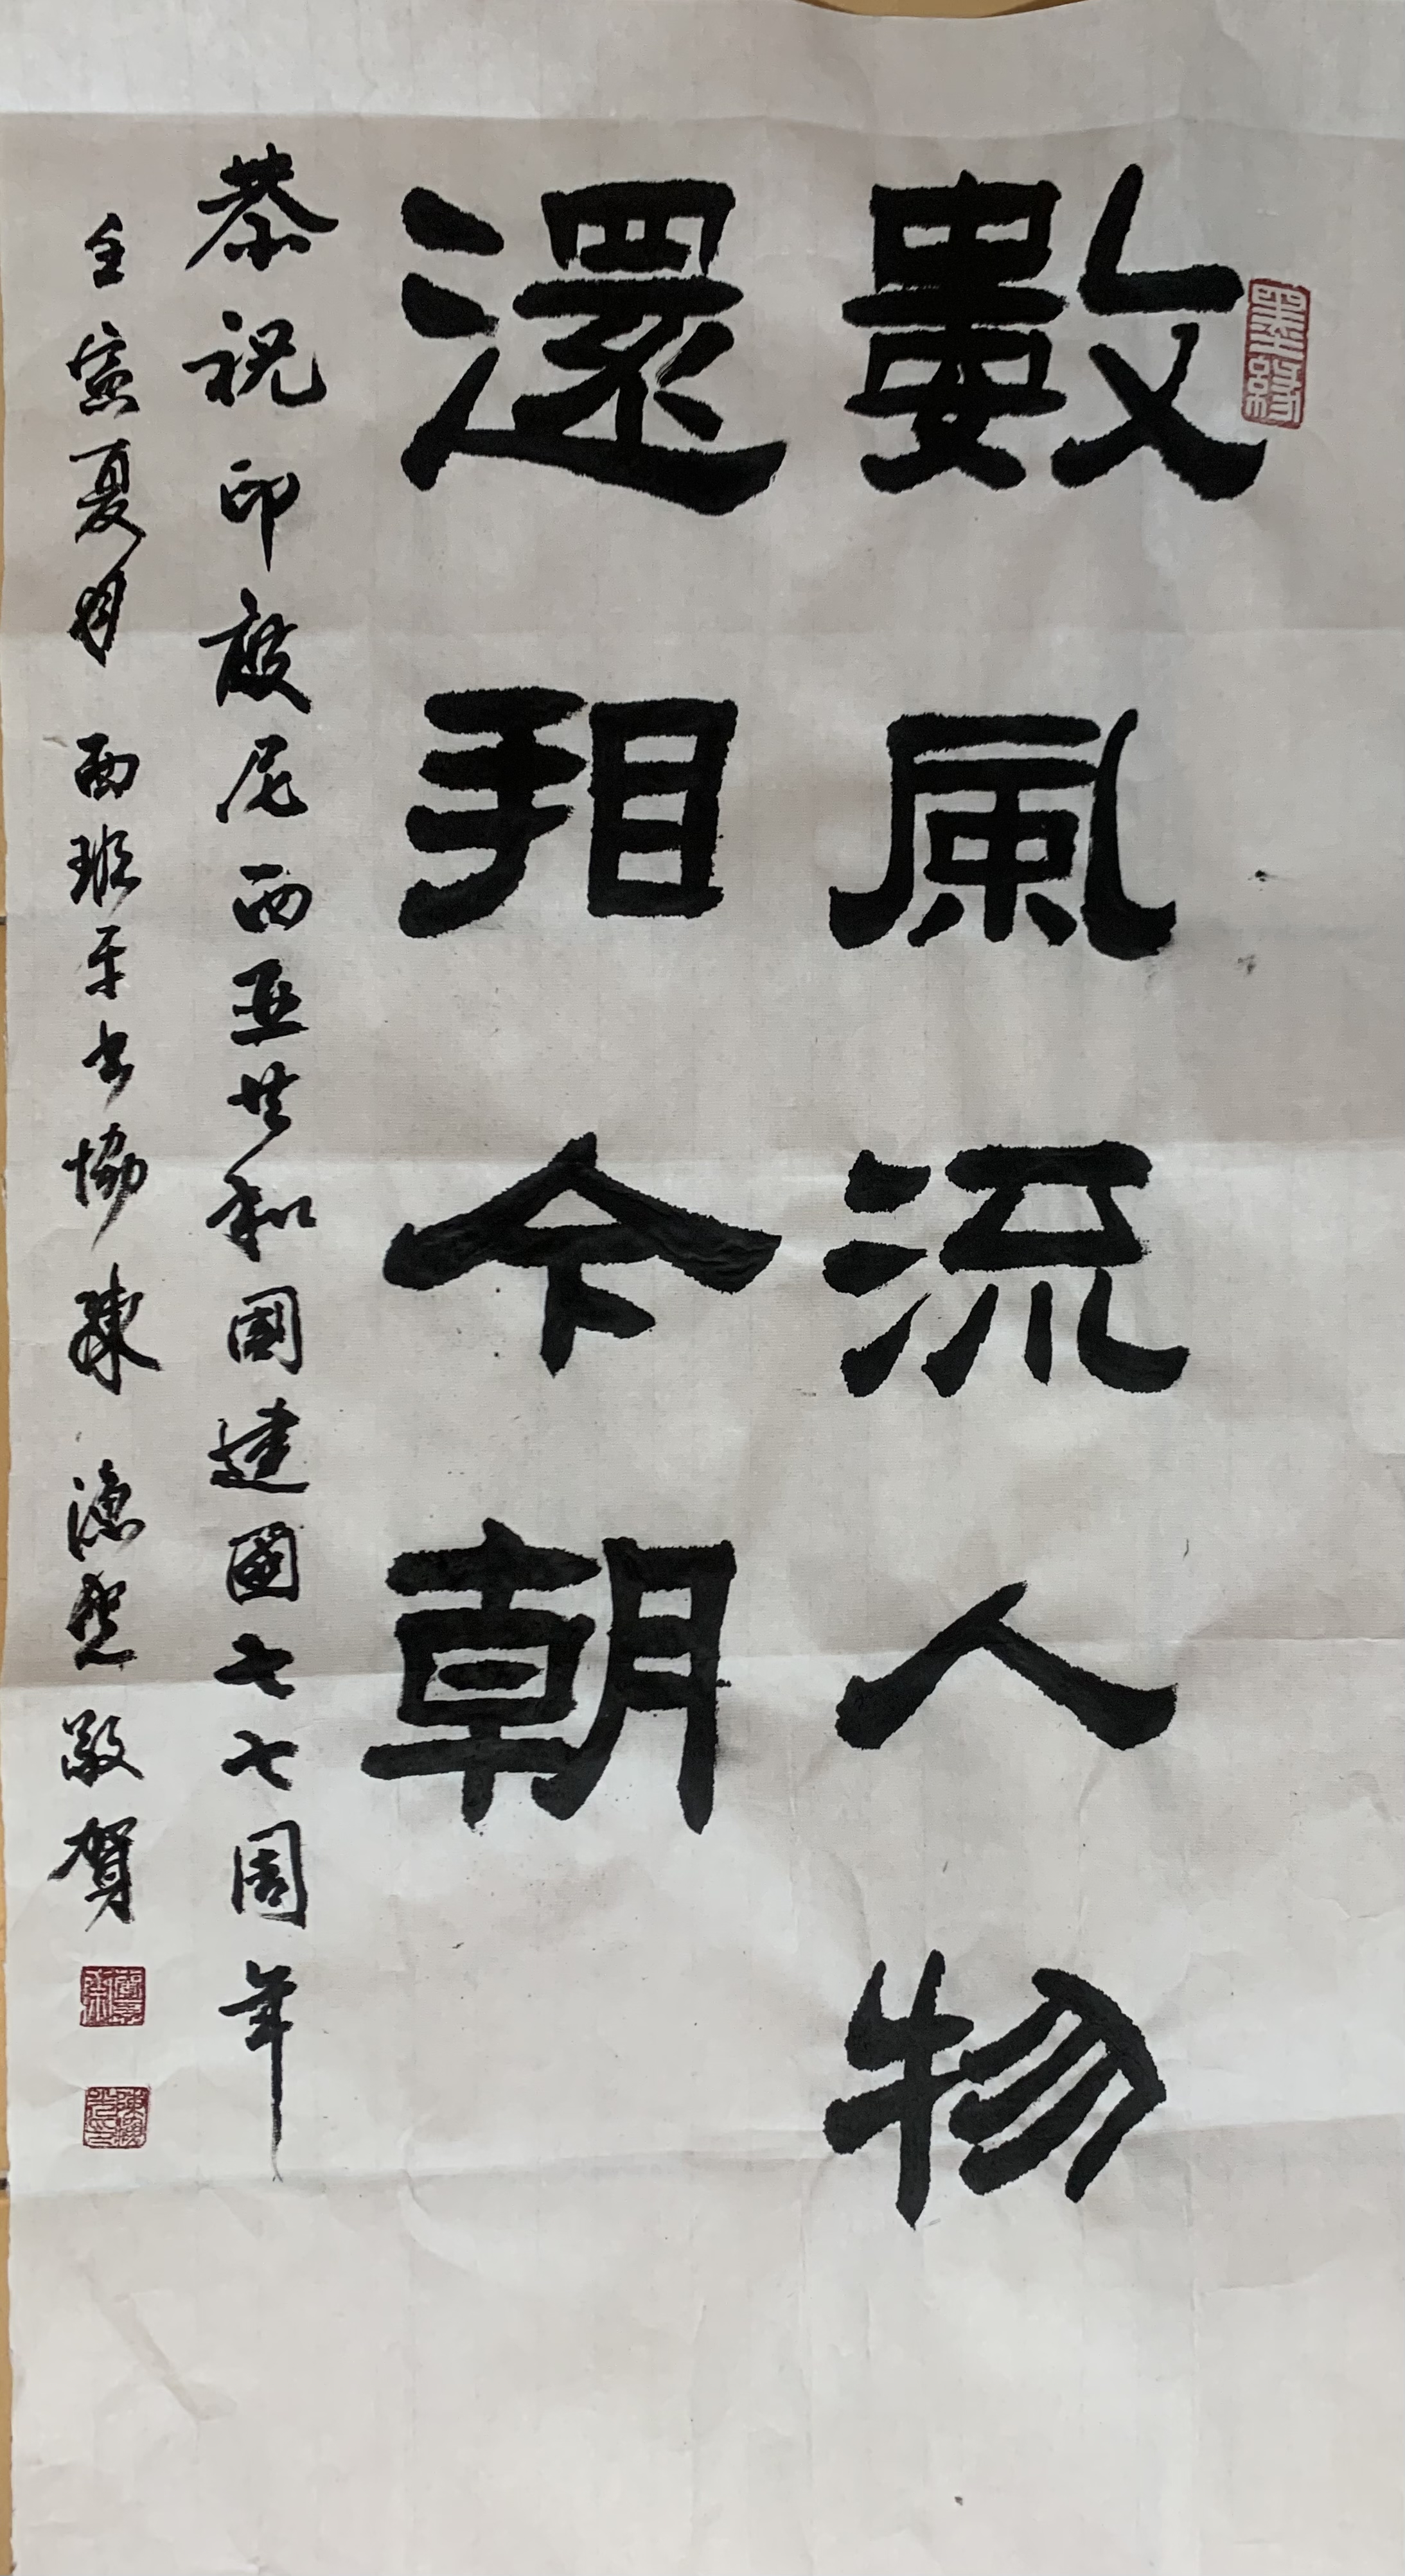 數風流人物
還相今朝
恭祝印度尼西亞共和國建國七七周年
壬寅夏月 西班牙書協 陳 光 敬賀